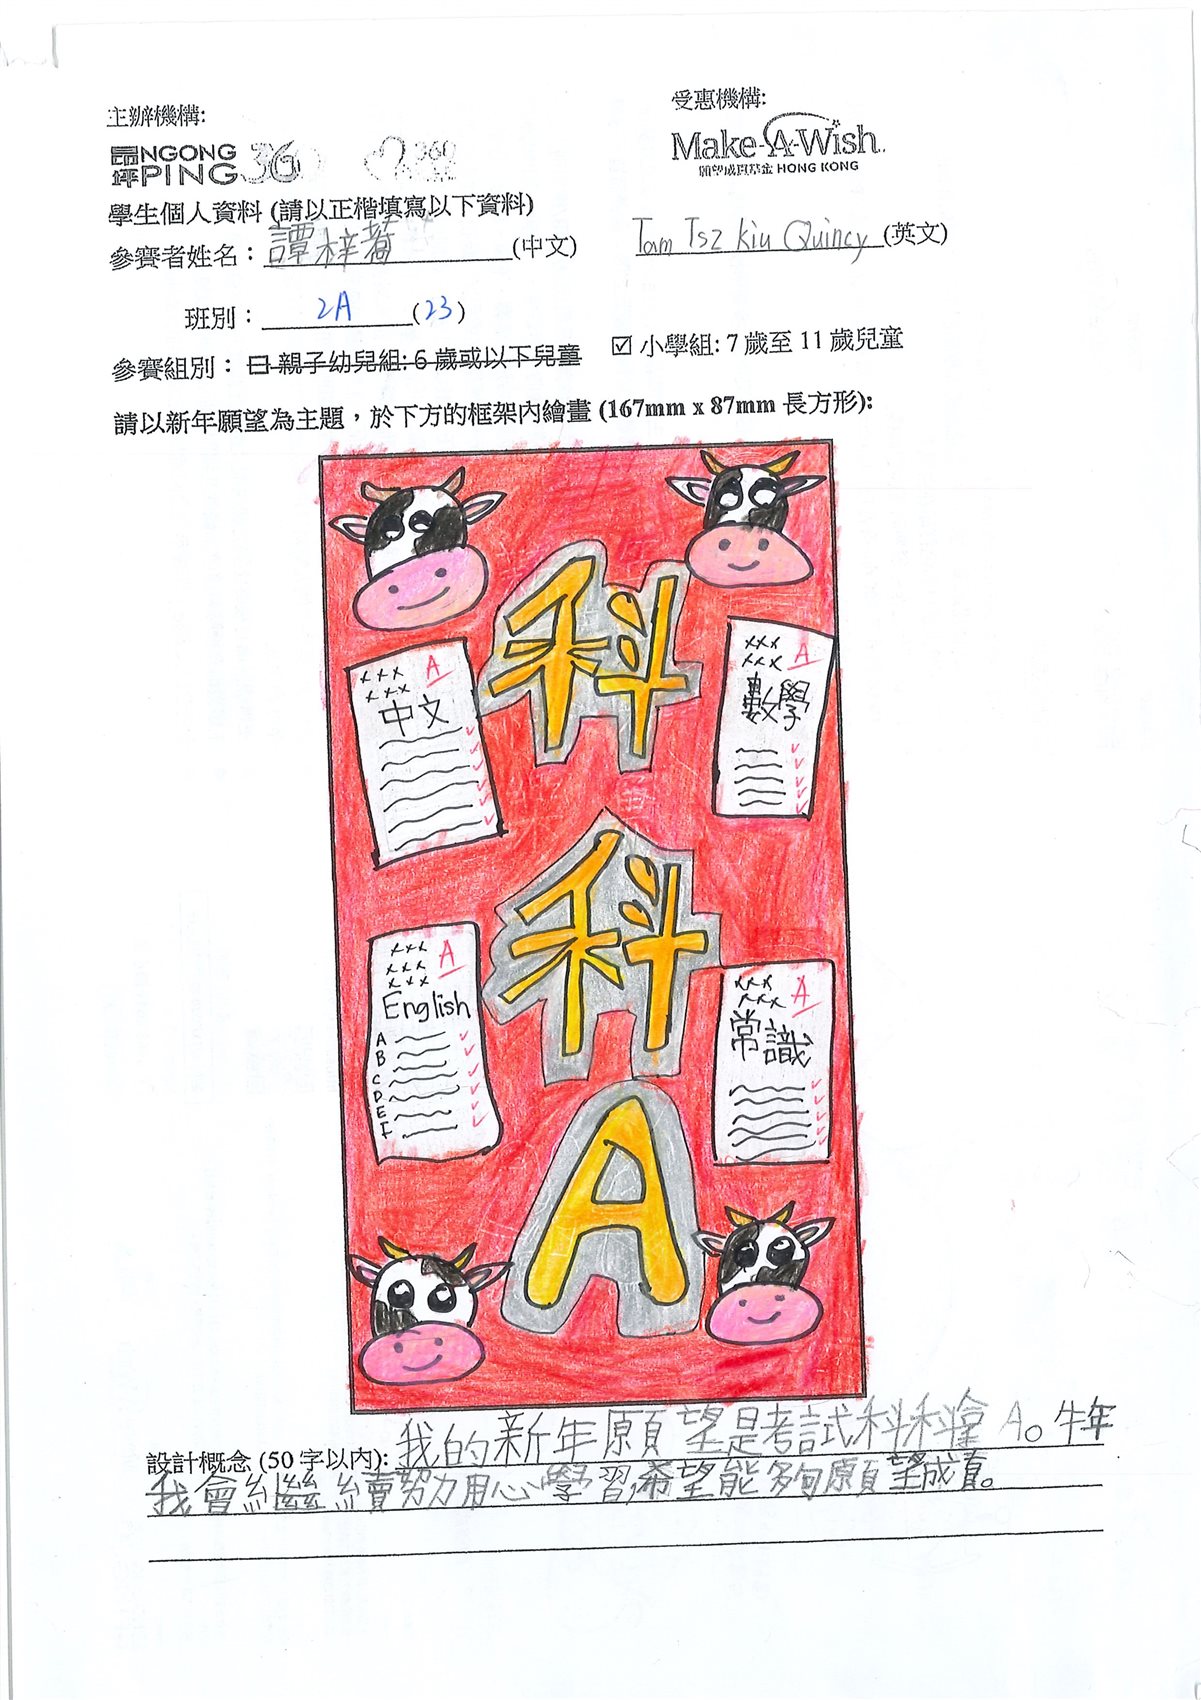 主辦機構:
受惠機構:
昂坪 NGONG PING 360
360
Make-A-Wish
願望成真基金 HONG KONG
學生個人資料 (請以正楷填寫以下資料)
參賽者姓名：譚梓蕎 (中文) Tam Tsz Kiu Quincy (英文)
班別：2A (23)
參賽組別： 親子幼兒組: 6 歲或以下兒童 ☑ 小學組: 7 歲至 11 歲兒童
請以新年願望為主題，於下方的框架內繪畫 (167mm x 87mm 長方形):
科
科
A
xxx A
xxx
中文
xxx A
xxx
數學
xxx A
xxx
xxx
English
A
B
C
D
E
F
xxx A
xxx
常識
設計概念 (50 字以內): 我的新年願望是考試科科拿 A。牛年
我會繼續努力用心學習,希望能夠願望成真。